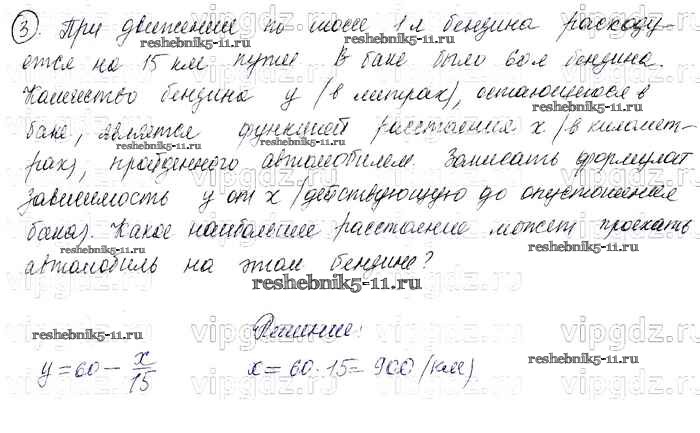 3. При движении по шоссе 1 л бензина расходу-
ется на 15 км пути. В баке было 60 л бензина.
Количество бензина y (в литрах), остающегося в
баке, является функцией расстояния x (в километ-
рах), пройденного автомобилем. Записать формулой
зависимость y от x (действующую до опустошения
бака). Какое наибольшее расстояние может проехать
автомобиль на этом бензине?
Решение:
y = 60 - x/15 x = 60 · 15 = 900 (км)
reshebnik5-11.ru
vipgdz.ru